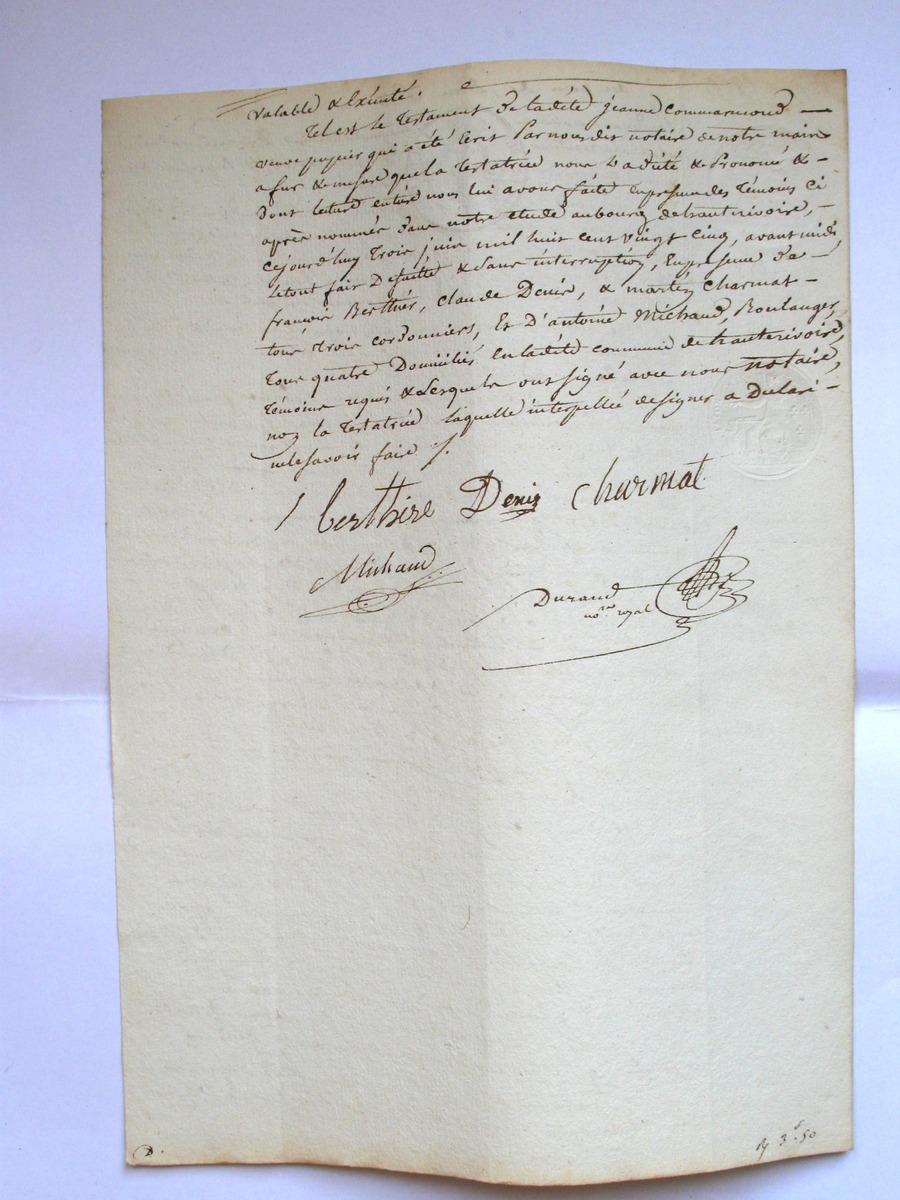 valable & Exécuté.
Tel est le Testament de ladite jeanne Commarmond
veuve papier qui a été Ecrit Par nous dit notaire de notre main
a fur & mesure que la Testatrice nous L'a dicté & Prononcé &
dont lecture entière nous lui avons faite En presence des Témoins ci
après nommés dans notre etude au bourg de hauterivoire,
Cejourd'huy Trois juin mil huit cent vingt Cinq, avant midi,
Le tout fait De suite & Sans interruption, En presence de
françois Berthier, Claude Denis, & Charmat
tous Trois cordonniers, Et D'antoine Michaud, Boulanger,
Tous quatre Domiciliés En ladite commune de hauterivoire,
Témoins requis & Lesquels ont signé avec nous notaire,
non la Testatrice Laquelle interpellée de signer a Déclaré
ne le savoir faire ./.
berthire Denis Charmat
Michaud
Durand
no.re royal
D.
3 f 50